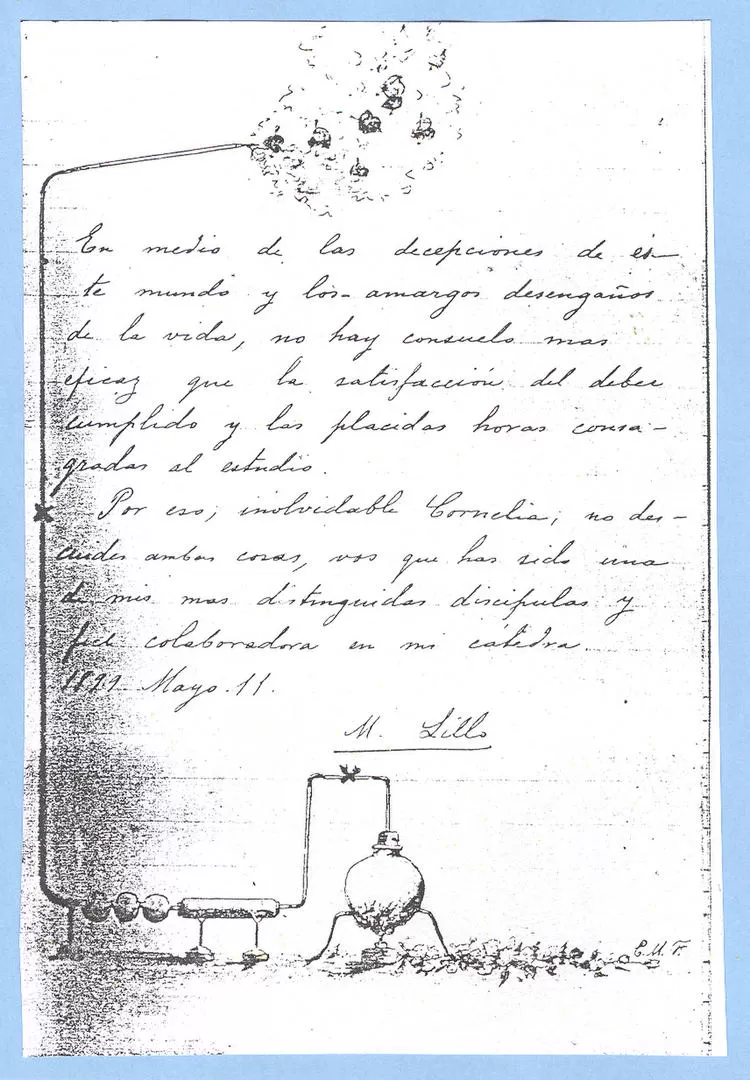 En medio de las decepciones de es-
te mundo y los amargos desengaños
de la vida, no hay consuelo mas
eficaz que la satisfacción del deber
cumplido y las placidas horas consa-
gradas al estudio.
Por eso, inolvidable Cornelia; no des-
cuides ambas cosas, vos que has sido una
de mis mas distinguidas discipulas y
fiel colaboradora en mi cátedra.
1899 Mayo. 11.
M. Lillo